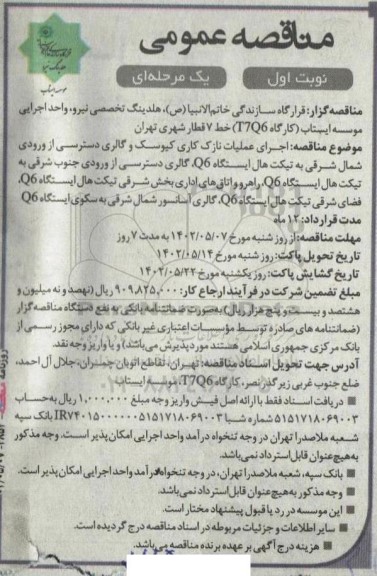 مناقصه عمومی
نوبت اول
یک مرحله‌ای
مناقصه گزار: قرارگاه سازندگی خاتم‌الانبیا (ص)، هلدینگ تخصصی نیرو، واحد اجرایی
موسسه ایستاب (کارگاه T7Q6) خط ۷ قطار شهری تهران
موضوع مناقصه: اجرای عملیات نازک کاری کیوسک و گالری دسترسی از ورودی
شمال شرقی به تیکت هال ایستگاه Q6، گالری دسترسی از ورودی جنوب شرقی به
تیکت هال ایستگاه Q6، راهرو و اتاق‌های اداری بخش شرقی تیکت هال ایستگاه Q6،
فضای شرقی تیکت هال ایستگاه Q6، گالری آسانسور شمال شرقی به سکوی ایستگاه Q6
مدت قرارداد: ۱۲ ماه
مهلت مناقصه: از روز شنبه مورخ ۱۴۰۲/۰۵/۰۷ به مدت ۷ روز
تاریخ تحویل پاکت: روز شنبه مورخ ۱۴۰۲/۰۵/۱۴
تاریخ گشایش پاکت: روز یکشنبه مورخ ۱۴۰۲/۰۵/۲۲
مبلغ تضمین شرکت در فرآیند ارجاع کار: ۹۰۹،۸۲۵،۰۰۰ ریال (نهصد و نه میلیون و
هشتصد و بیست و پنج هزار ریال) به‌صورت ضمانتنامه بانکی به نفع دستگاه مناقصه گزار
(ضمانتنامه های صادره توسط مؤسسات اعتباری غیر بانکی که دارای مجوز رسمی از
بانک مرکزی جمهوری اسلامی هستند مورد پذیرش می‌باشد) و یا واریز وجه نقد.
آدرس جهت تحویل اسناد مناقصه: تهران، تقاطع اتوبان چمران، جلال آل احمد،
ضلع جنوب غربی زیر گذر نصر، کارگاه T7Q6، موسسه ایستاب
■ دریافت اسناد فقط با ارائه اصل فیش واریز وجه مبلغ ۱،۰۰۰،۰۰۰ ریال به‌حساب
۵۱۵۱۷۱۸۰۶۹۰۰۳ شماره شبا IR۷۴۰۱۵۰۰۰۰۰۰۵۱۵۱۷۱۸۰۶۹۰۰۳ بانک سپه
شعبه ملاصدرا تهران در وجه تنخواه درآمد واحد اجرایی امکان پذیر است. وجه مذکور
به‌هیچ‌عنوان قابل استرداد نمی‌باشد.
■ بانک سپه، شعبه ملاصدرا تهران، در وجه تنخواه درآمد واحد اجرایی امکان پذیر است.
■ وجه مذکور به‌هیچ‌عنوان قابل استرداد نمی‌باشد.
■ این موسسه در رد یا قبول پیشنهاد مختار است.
■ سایر اطلاعات و جزئیات مربوطه در اسناد مناقصه درج گردیده است.
■ هزینه درج آگهی بر عهده برنده مناقصه می‌باشد.